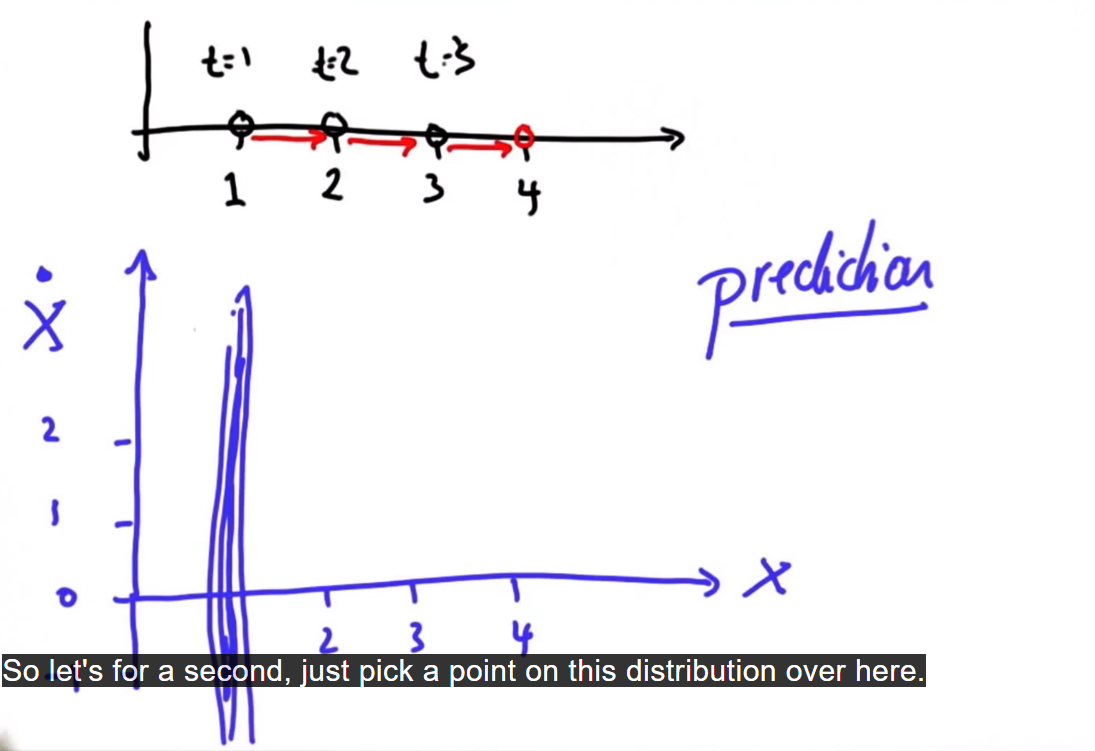 t=1 t=2 t=3
1 2 3 4
prediction
Ẋ
2
1
0
X
2 3 4
So let's for a second, just pick a point on this distribution over here.